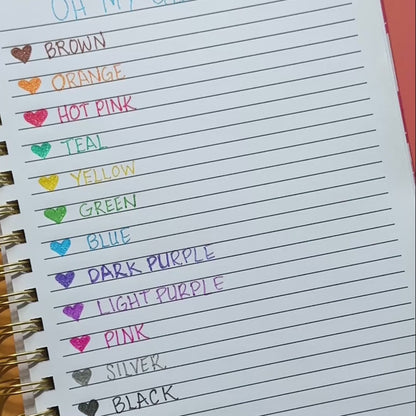 OH MY
BROWN
ORANGE
HOT PINK
TEAL
YELLOW
GREEN
BLUE
DARK PURPLE
LIGHT PURPLE
PINK
SILVER
BLACK